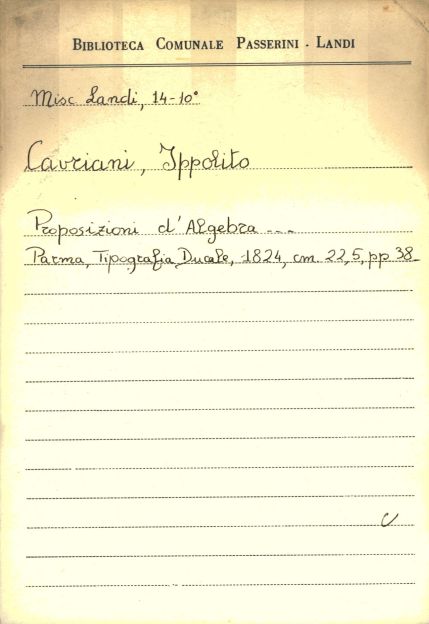 BIBLIOTECA COMUNALE PASSERINI - LANDI
Misc Landi, 14-10°
Cavriani, Ippolito
Proposizioni d'Algebra ...
Parma, Tipografia Ducale, 1824, cm. 22,5, pp 38
C